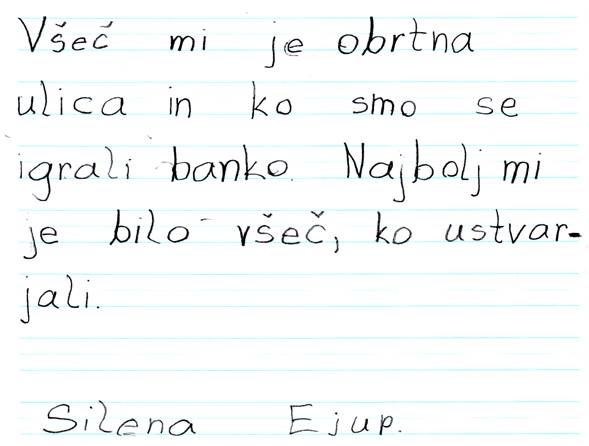 Všeč mi je obrtna
ulica in ko smo se
igrali banko. Najbolj mi
je bilo všeč, ko ustvar-
jali.
Silena Ejup.